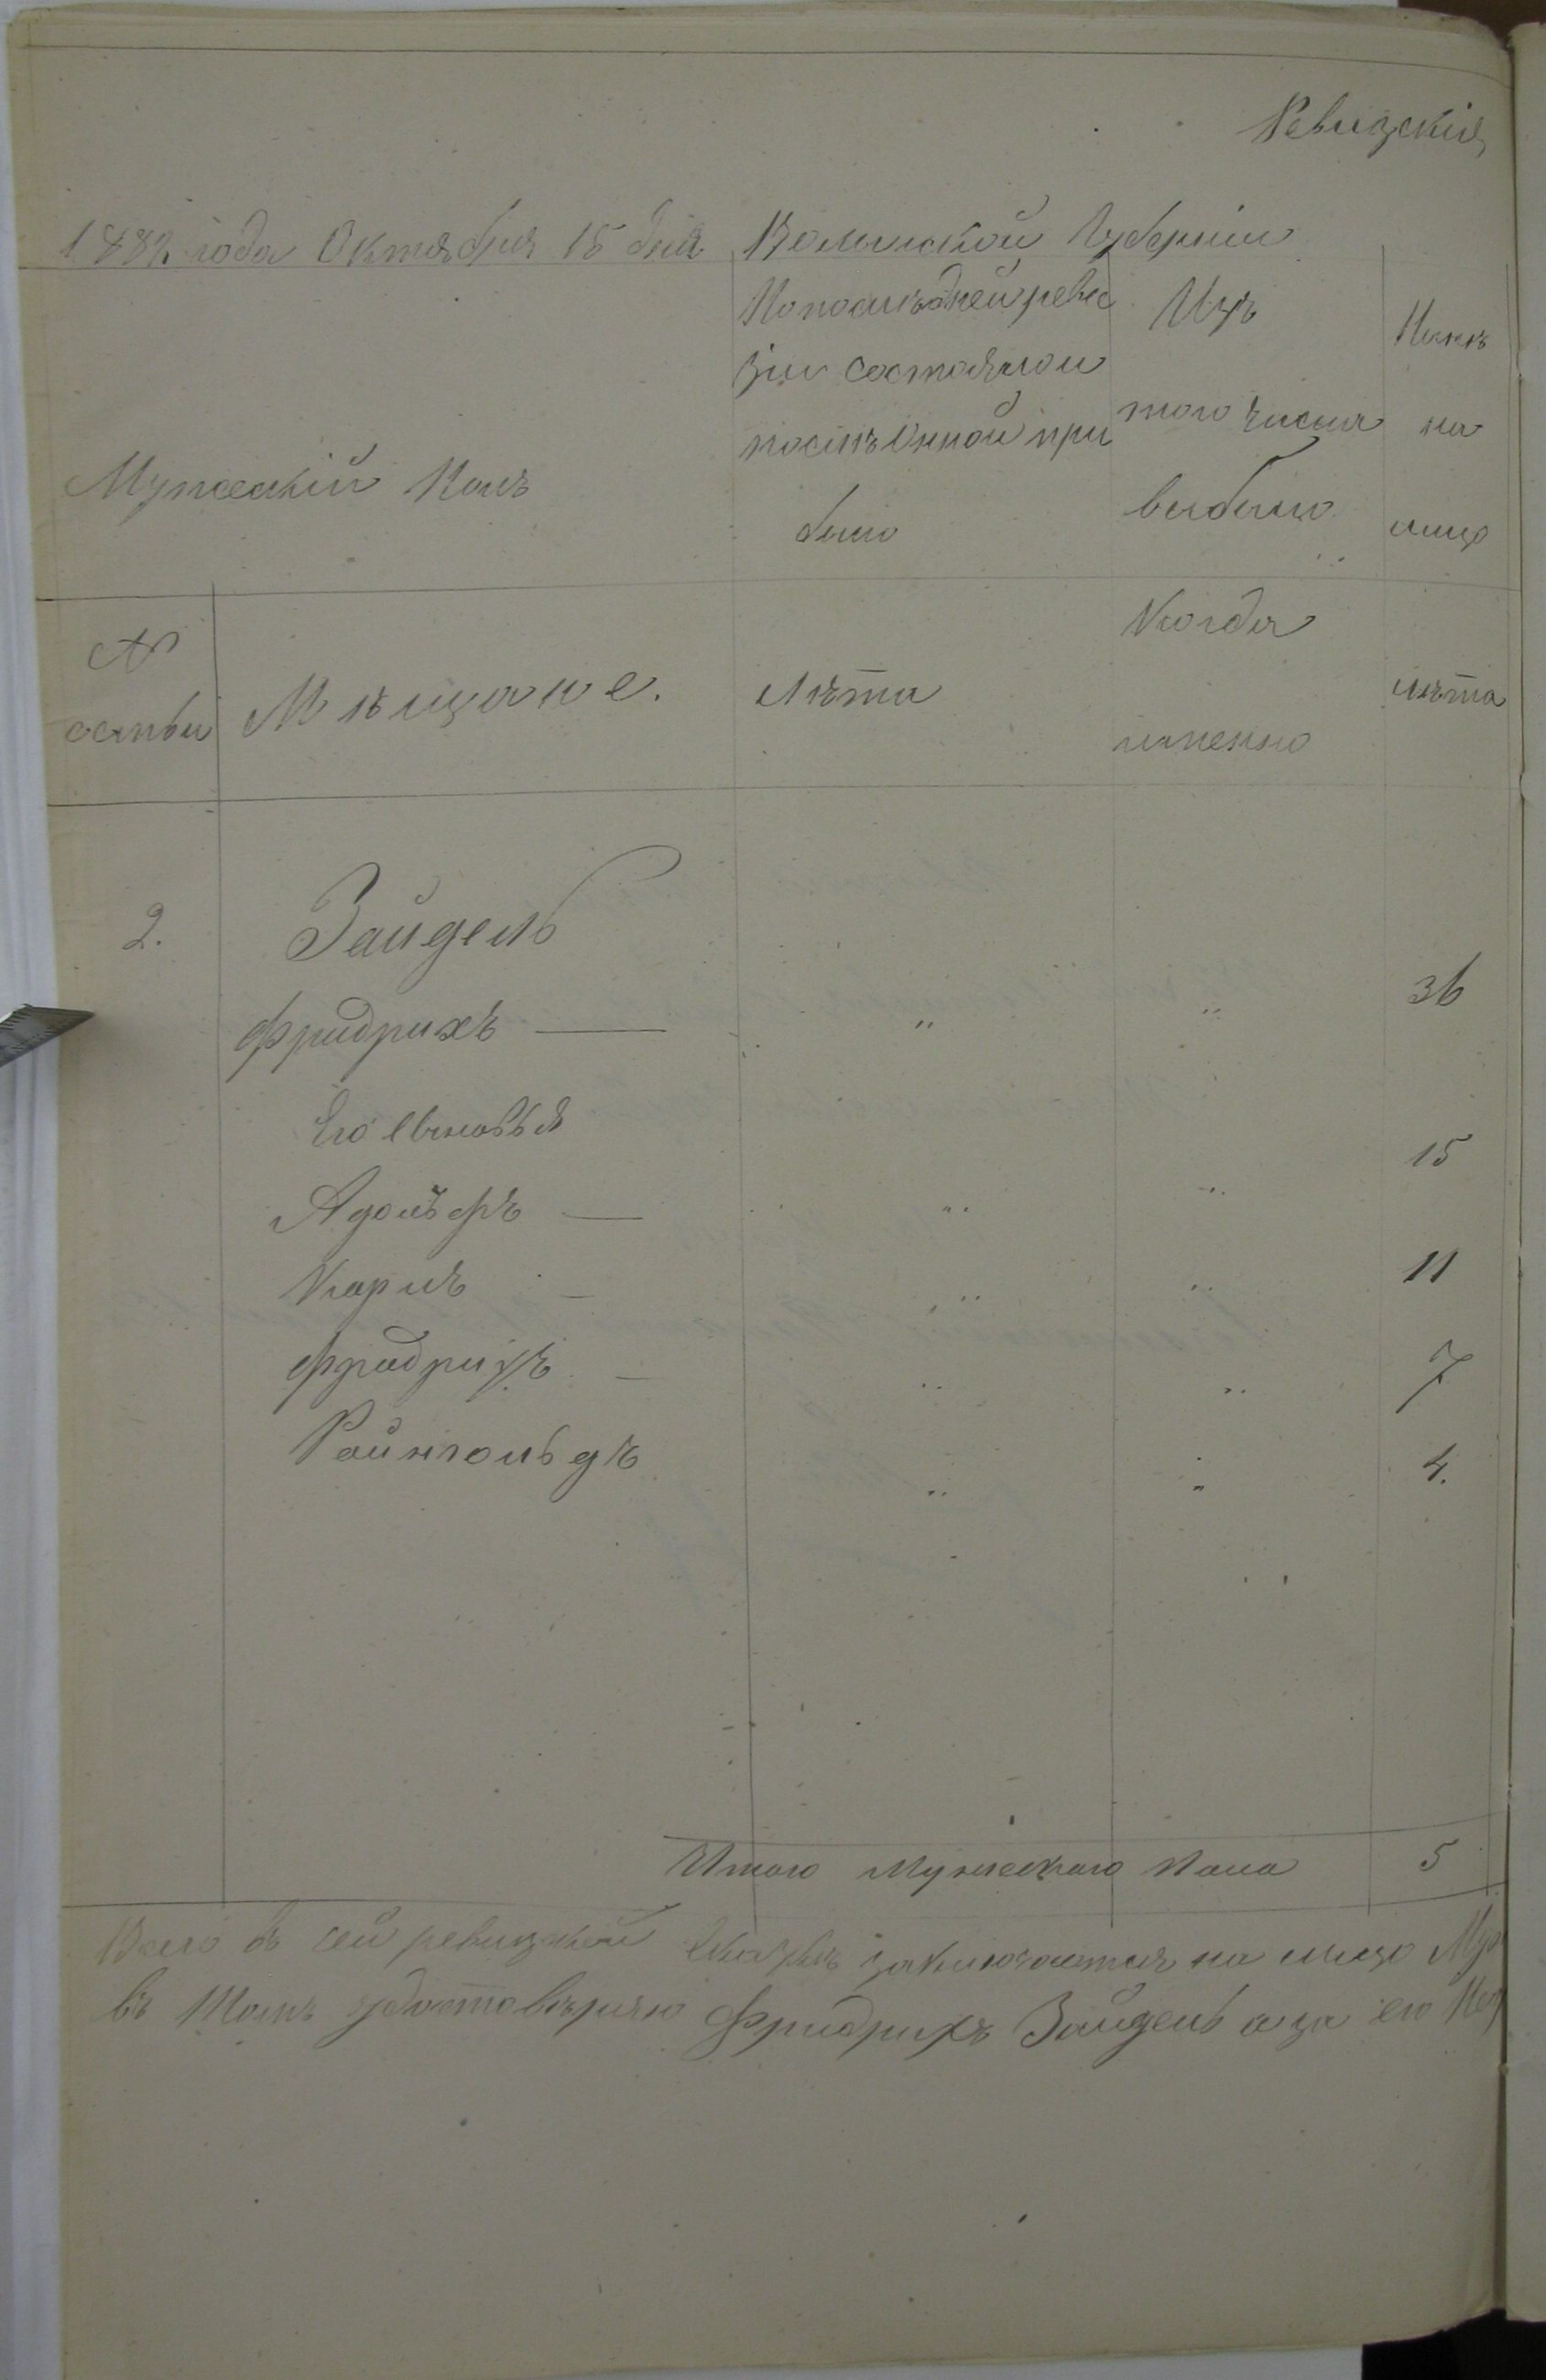 Ревизскія
1882 года Октября 15 дня Волынской Губерніи
Мужескій Полъ
По последней реве
зіи состояло и
послѣ Онной при
было
Изъ
того числа
выбыло
Нынѣ
на
лицо
№
семьи
Мѣщане.
Лѣта
Когда
именно
Лѣта
2. Зайдель
Фридрихъ — " " 36
Его Сыновья
Адольфъ — " " 15
Карлъ — " " 11
Фридрихъ — " " 7
Райнгольдъ " " 4.
Итого Мужескаго Пола 5
Всего въ сей ревизкой Сказкѣ заключается на лицо Муж
въ Томъ удостовѣряю Фридрихъ Зайдель а за его Нег